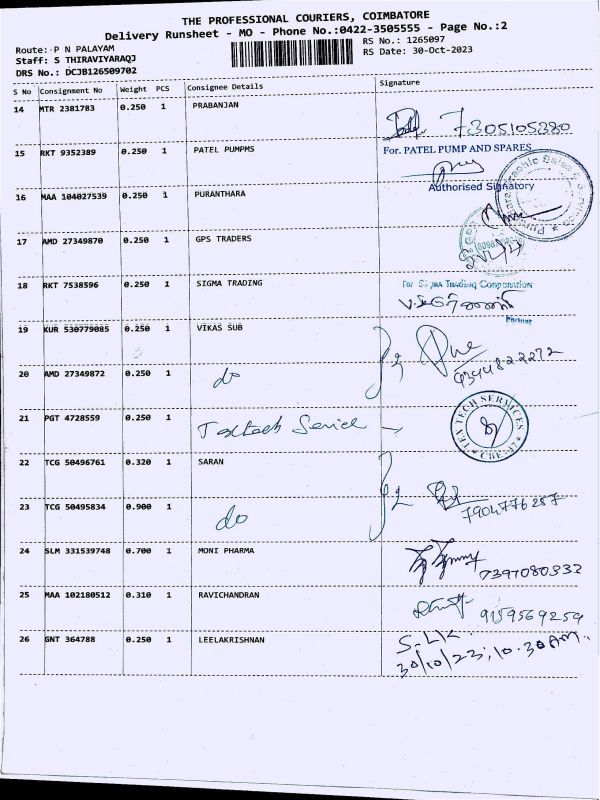 THE PROFESSIONAL COURIERS, COIMBATORE
Delivery Runsheet - MO - Phone No.:0422-3505555 - Page No.:2
Route: P N PALAYAM
RS No.: 1265097
Staff: S THIRAVIYARAQJ
RS Date: 30-Oct-2023
DRS No.: DCJB126509702
S No Consignment No Weight PCS Consignee Details Signature
14 MTR 2381783 0.250 1 PRABANJAN
7305105380
15 RKT 9352389 0.250 1 PATEL PUMPMS For. PATEL PUMP AND SPARES
Authorised Signatory
16 MAA 104027539 0.250 1 PURANTHARA
17 AMD 27349870 0.250 1 GPS TRADERS
18 RKT 7538596 0.250 1 SIGMA TRADING For SIGMA TRADING CORPORATION
Partner
19 KUR 530779085 0.250 1 VIKAS SUB
9344822272
20 AMD 27349872 0.250 1 do
21 PGT 4728559 0.250 1 Textech Service
TEX TECH SERVICES
22 TCG 50496761 0.320 1 SARAN
23 TCG 50495834 0.900 1 do
7904776257
24 SLM 331539748 0.700 1 MONI PHARMA
7397080333
25 MAA 102180512 0.310 1 RAVICHANDRAN
9159569259
26 GNT 364788 0.250 1 LEELAKRISHNAN
30/10/23, 10.30 AM.